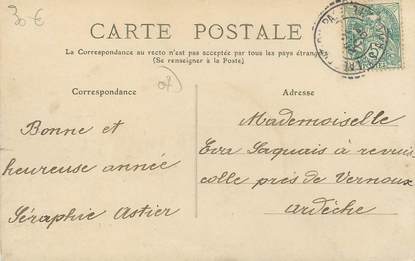 30 €
CARTE POSTALE
La Correspondance au recto n'est pas acceptée par tous les pays étrangers
(Se renseigner à la Poste)
07
Correspondance
Bonne et
heureuse année
Séraphie Astier
Adresse
Mademoiselle
Eva Saquais à revui
colle prés de Vernoux
ardèche